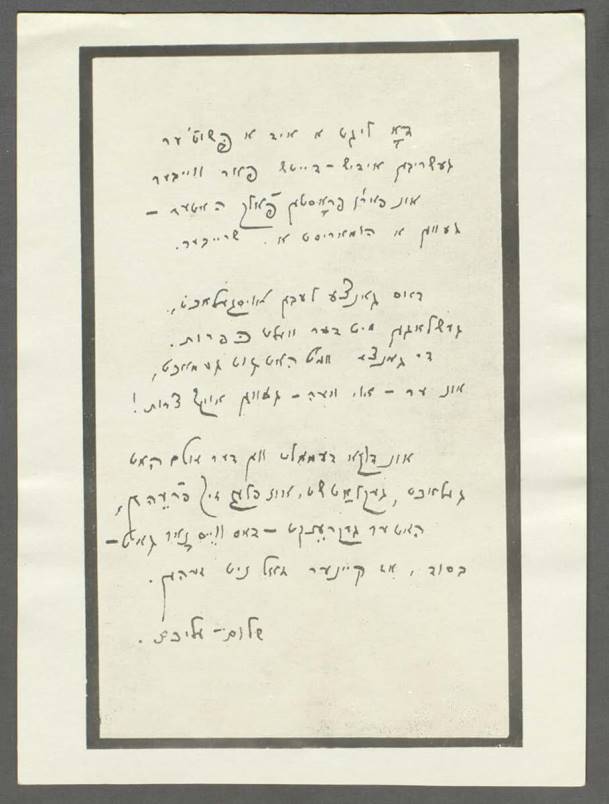 דאָ ליגט א איד א פּשוט'ער
געשריבען אידיש-דייטש פאר ווייבער
און פאר'ן פּראָסטען פאָלק האט ער -
געווען א הומאריסט א שרייבער.
דאס גאנצע לעבען אויסגעלאכט,
געשלאגען מיט דער וועלט כּפּרות.
די גאנצע וועלט האט גוט געמאכט,
און ער - אוי וועה - געווען אויף צרות!
און דוקא דעמאלט ווען דער עולם האט
געלאכט, געקלאַטשט, און פלעג זיך פרעהען,
האט ער געקרענקט - דאס ווייס נאָר גאט -
בסוד, אַז קיינער זאל ניט זעהען.
שלום-עליכם.